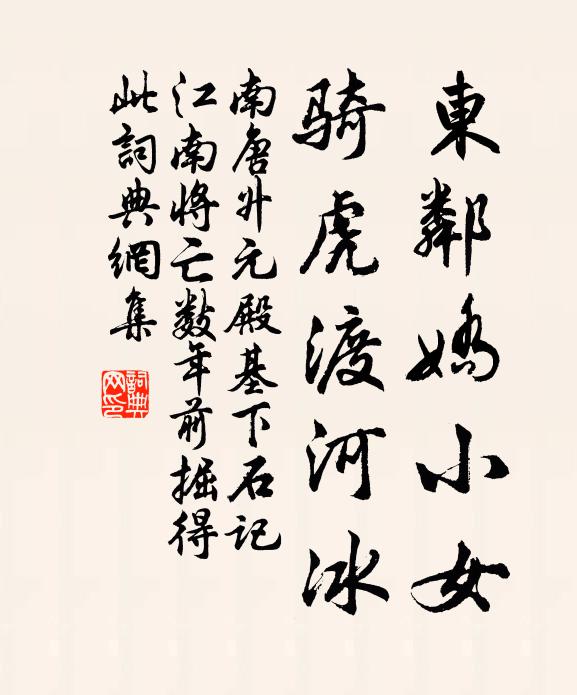 東鄰嬌小女
騎虎渡河冰
南唐升元殿基下石記
江南將亡數年前掘得
此詞典網集
詞典
网印